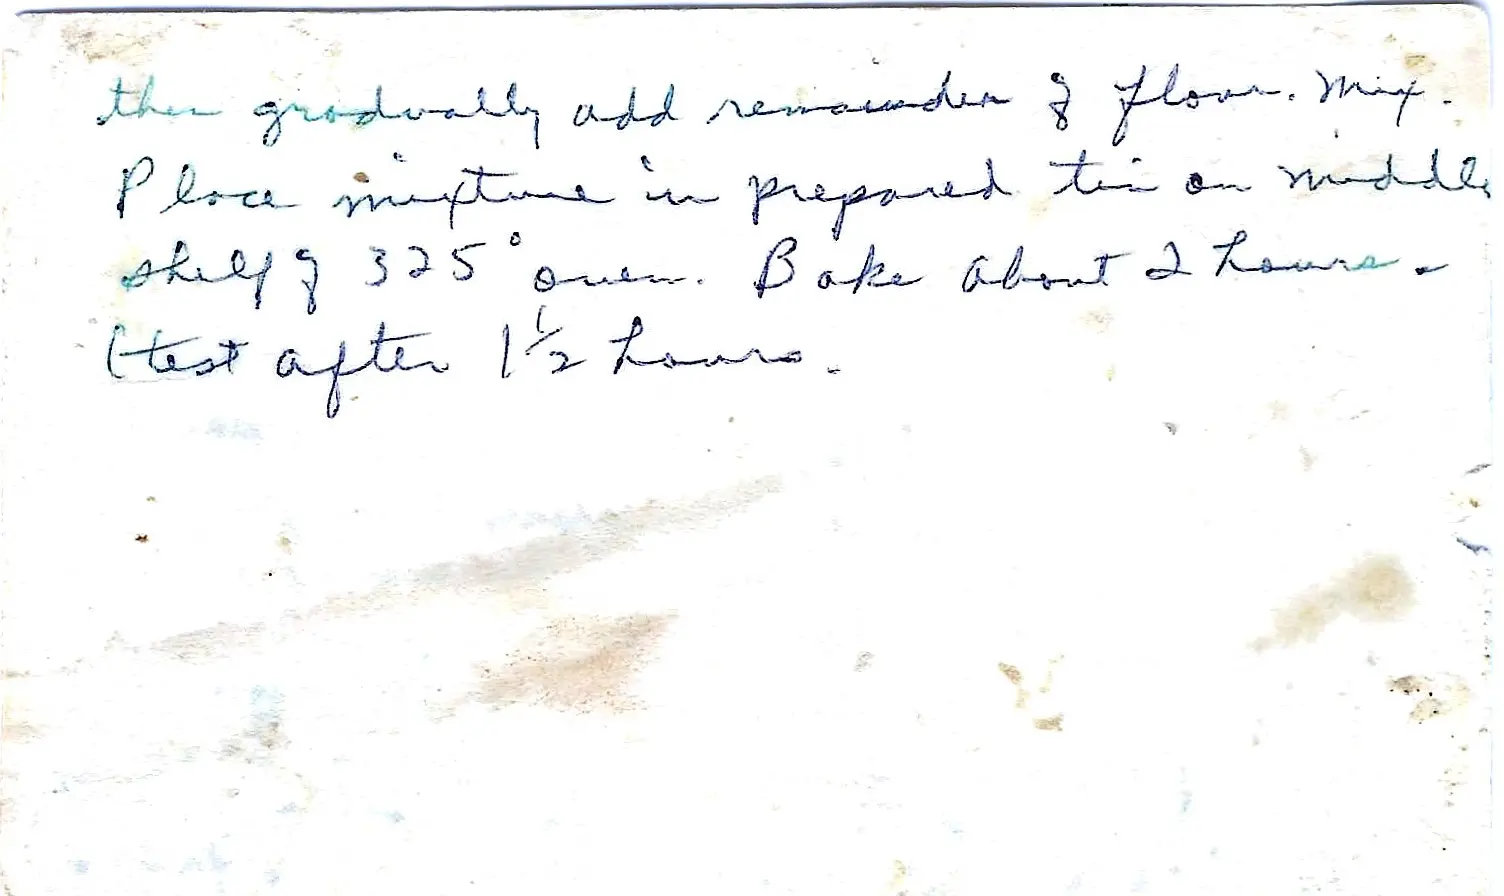 then gradually add remainder of flour. Mix.
Place mixture in prepared tin on middle
shelf of 325° oven. Bake about 2 hours.
(test after 1 1/2 hours.